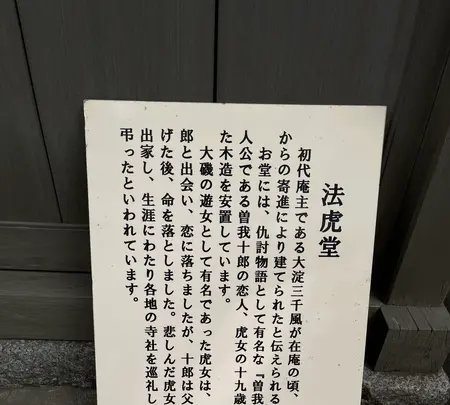 法虎堂
初代庵主である大淀三千風が在庵の頃、
からの寄進により建てられたと伝えられる
お堂には、仇討物語として有名な『曽我
人公である曽我十郎の恋人、虎女の十九歳
た木造を安置しています。
大磯の遊女として有名であった虎女は、
郎と出会い、恋に落ちましたが、十郎は父
げた後、命を落としました。悲しんだ虎女
出家し、生涯にわたり各地の寺社を巡礼し
弔ったといわれています。